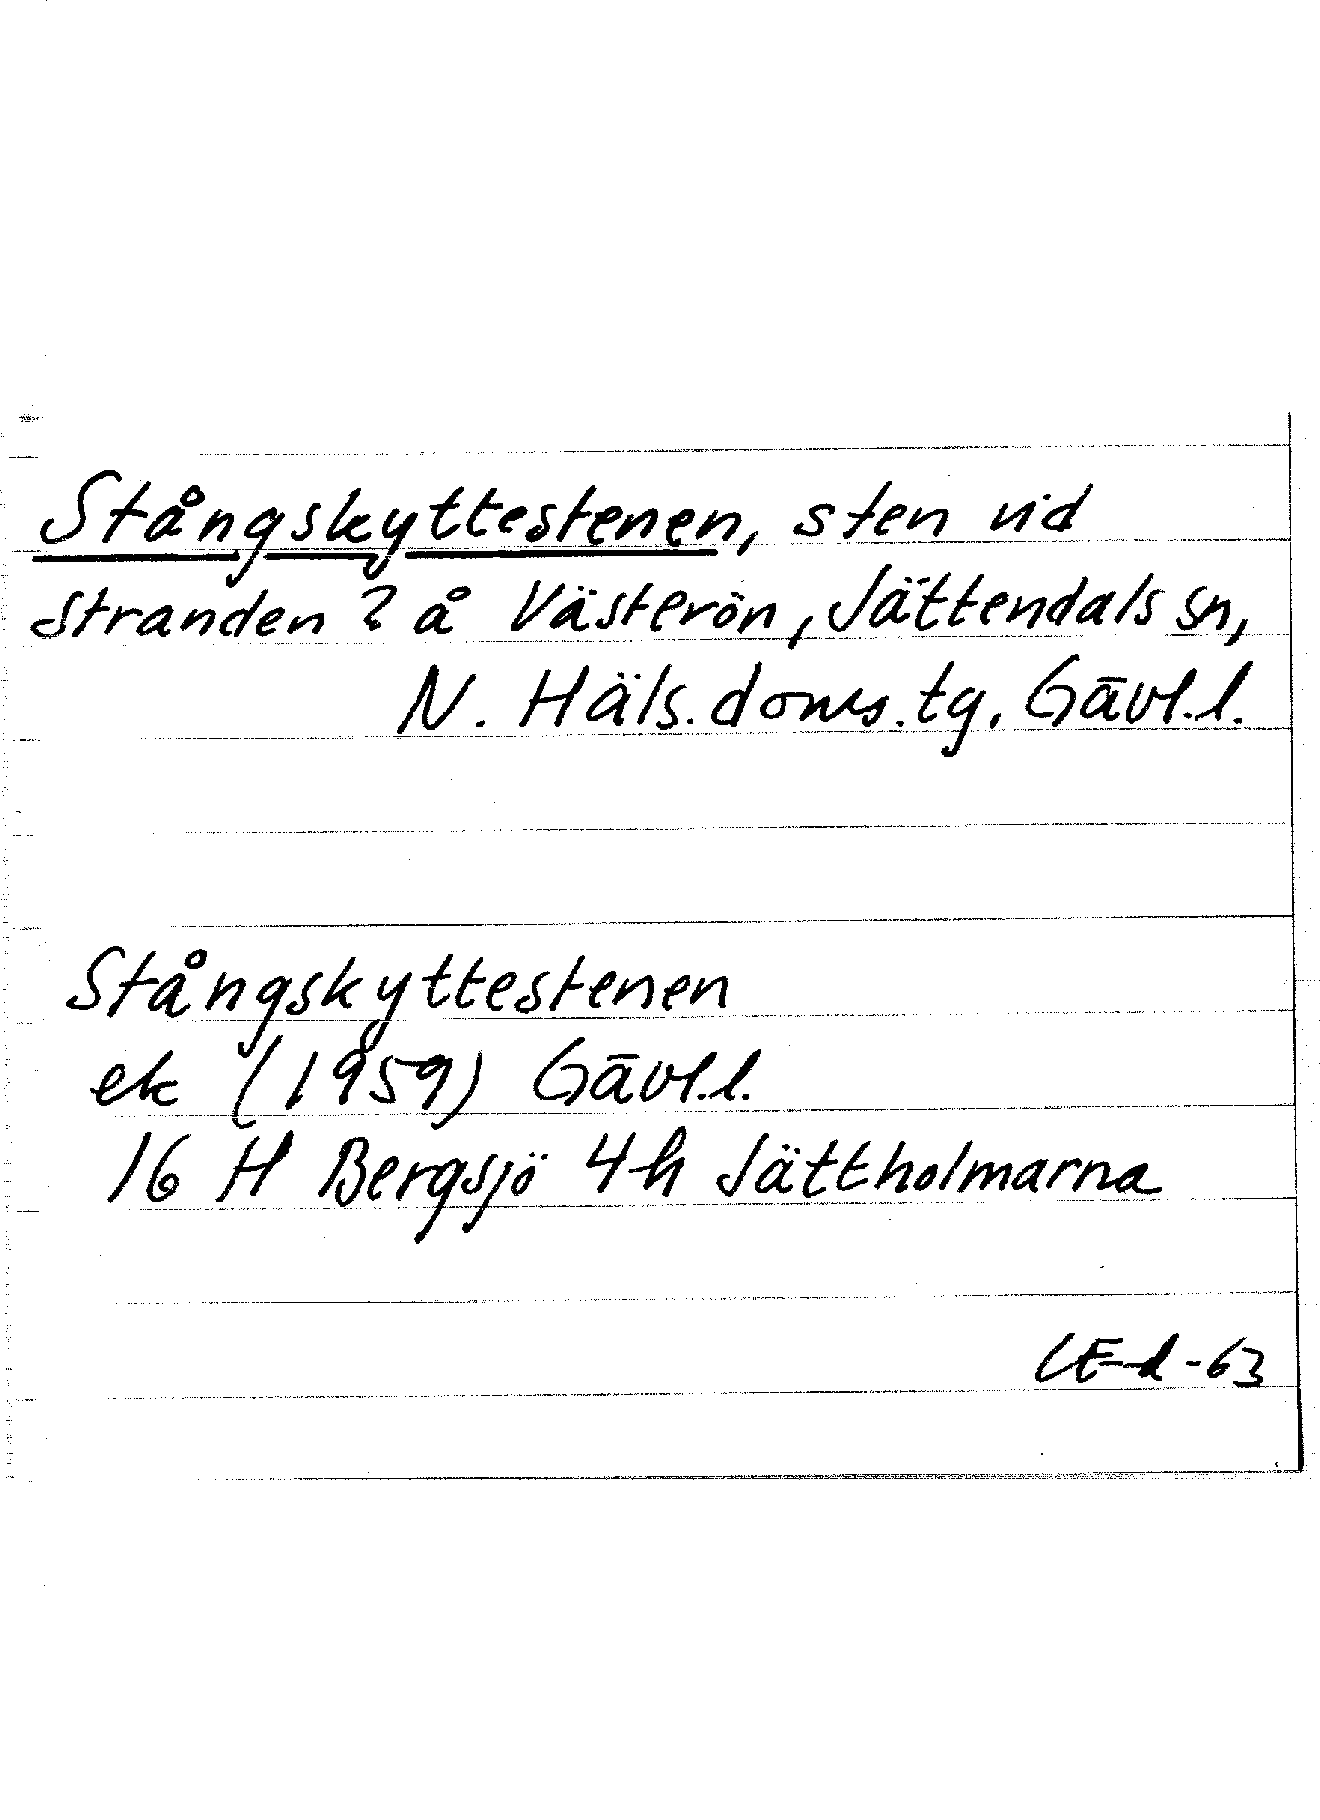 Stångskyttestenen, sten vid
stranden ? å Västerön, Jättendals sn,
N. Häls. doms. tg. Gävl.l.
Stångskyttestenen
ek (1959) Gävl.l.
16 H Bergsjö 4h Jättholmarna
-63